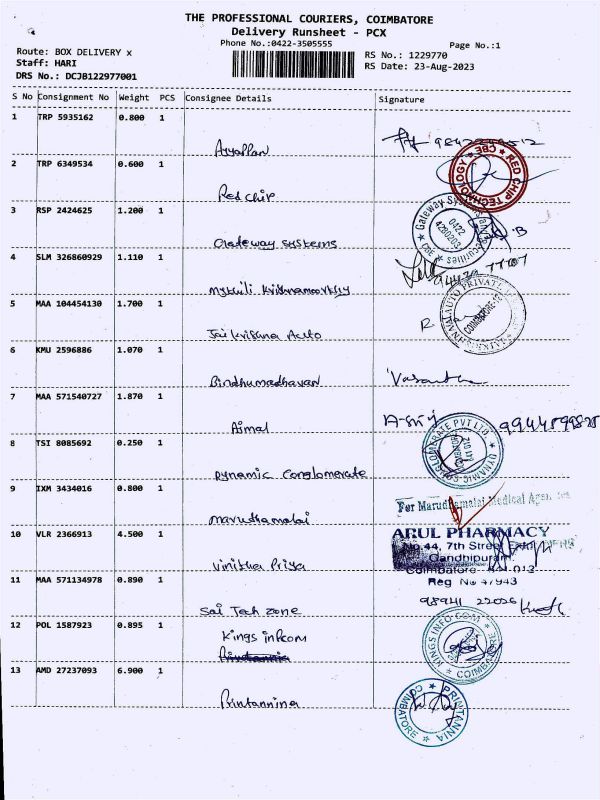 THE PROFESSIONAL COURIERS, COIMBATORE
Delivery Runsheet - PCX
Phone No.:0422-3505555
Page No.:1
Route: BOX DELIVERY x
Staff: HARI
DRS No.: DCJB122977001
RS No.: 1229770
RS Date: 23-Aug-2023
S No Consignment No Weight PCS Consignee Details Signature
1 TRP 5935162 0.800 1
Ayyappan
2 TRP 6349534 0.600 1
Red chip
RED CHIP TECHNOLOGY CBE
3 RSP 2424625 1.200 1
Gateway systems
Gateway Systems Securities CBE
0422 4290203
4 SLM 326860929 1.110 1
krishnamoorthy
5 MAA 104454130 1.700 1
Jai krishna Auto
JAI KRISHNA AUTO PRIVATE
COIMBATORE-12
6 KMU 2596886 1.070 1
Bindhumadhavan
Vasantha
7 MAA 571540727 1.870 1
Ajmal
8 TSI 8085692 0.250 1
Dynamic Conglomerate
DYNAMIC CONGLOMERATE PVT LTD.
9 IXM 3434016 0.800 1
marudhamalai
For Marudhamalai Medical Agencies
10 VLR 2366913 4.500 1
Vinitha Priya
ARUL PHARMACY
No.44, 7th Street
Gandhipuram
Coimbatore
Reg No 47943
11 MAA 571134978 0.890 1
Sai Tech zone
98941 22026
12 POL 1587923 0.895 1
Kings infocom
KINGS INFO COM COIMBATORE
13 AMD 27237093 6.900 1
Printannina
PRINTANNIA COIMBATORE